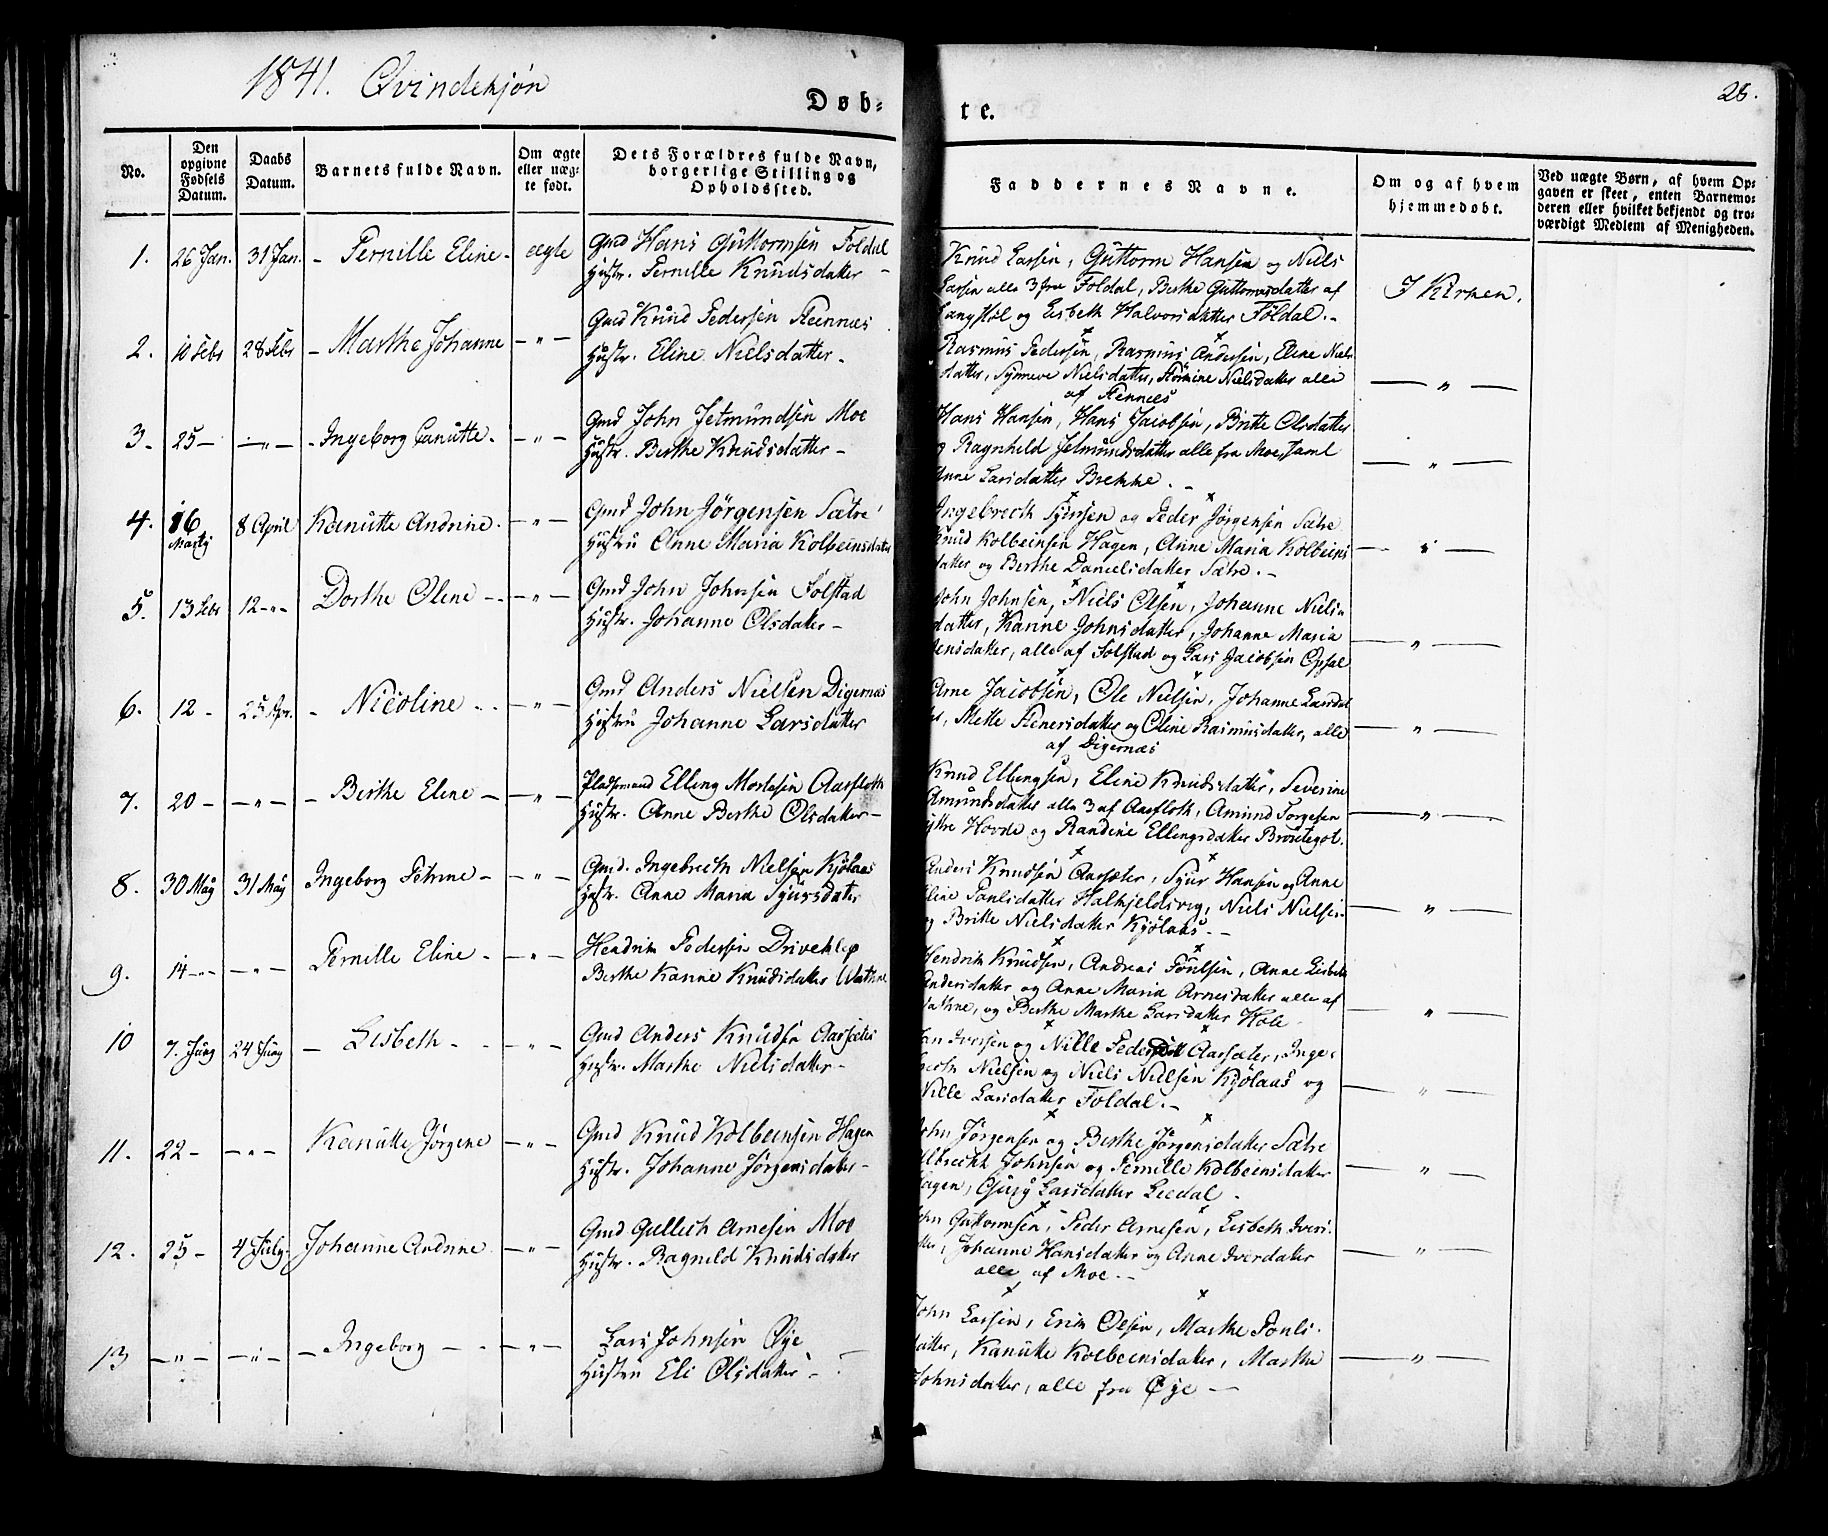 1841. Qvindekjøn
Døb-
te.
28.
No.
Den opgivne Fødsels Datum.
Daabs Datum.
Barnets fulde Navn.
Om ægte eller uægte født.
Dets Forældres fulde Navn, borgerlige Stilling og Opholdssted.
Faddernes Navne.
Om og af hvem hjemmedøbt.
Ved uægte Børn, af hvem Opgaven er skeet, enten Barnemoderen eller hvilket bekjendt og troværdigt Medlem af Menigheden.
1. 26 Jan. 31 Jan. - Pernille Eline - ægte Gmd Hans Guttormsen Foldal
Hustr. Pernille Knudsdatter -
Knud Larsen, Guttorm Hansen og Niels
Larsen alle 3 fra Foldal, Berthe Guttormsdatter af
Langstøl og Lisbeth Halvorsdatter Foldal. -
I Kirken.
2. 10 Febr 28 Febr - Marthe Johanne - " - Gmd Knud Pedersen Steennæs
Hustr. Eline Nielsdatter -
Rasmus Pedersen, Rasmus Andersen, Eline Niels
datter, Synneve Nielsdatter, Nielsdatter alle
af Stennæs
- " -
3. 25 - - " - - Ingeborg Canutte - - " - Gmd John Jetmundsen Moe
Hustr. Berthe Knudsdatter -
Hans Hansen, Hans Jacobsen, Britte Olsdatter
og Ragnheld Jetmundsdatter alle fra Moe, saml
Anne Larsdatter Brekke. -
- " -
4. 16 Martz 8 April Kanutte Andrine. - " - Gmd John Jörgensen Sætre
Hustru Anne Maria Kolbeinsdatter
Ingebrecth Sjursen og Peder Jörgensen Sætre
Knud Kolbeinsen Hagen, Anne Maria Kolbeins
datter og Berthe Danielsdatter Sætre. -
- " -
5. 13 Febr 12 - " - Dorthe Oline - - " - Gmd John Johnsen Solstad
Hustr. Johanne Olsdatter -
John Johnsen, Niels Olsen, Johanne Niels
datter, Karine Johnsdatter, Johanne Maria
ensdatter, alle af Solstad og Lars Jacobsen Opsal
- " -
6. 12 - 25 Apr. - Nicoline - - " - Gmd Anders Nielsen Digernæs
Hustru Johanne Larsdatter
Arne Jacobsen, Ole Nielsen, Johanne Larsdat
ter, Mette Stenersdatter og Oline Rasmusdatter, alle
af Digernæs
- " -
7. 20 - - " - - Berthe Eline - - " - Pladsemand Elling Mortesen Aarsloth
Hustr. Anne Berthe Olsdatter -
Knud Ellingsen, Eline Knudsdatter, Severine
Amundsdatter alle 3 af Aarsloth, Amund Torgesen
Hovde og Randine Ellingsdatter Brautegot.
- " -
8. 30 May 31 May Ingeborg Petrine - - " - Gmd. Ingebrecth Nielsen Kjölaas
Hustr. Anne Maria Sjursdatter
Anders Knudsen Aarsæter, Sjur Hansen og Anne
Eline Paulsdatter Halkjeldsvig, Niels Nielsen
og Britte Nielsdatter Kjölaas. -
- " -
9. 14 - " - - " - Pernille Eline - - " - Hendrik Pedersen Driveklep
Berthe Kanne Knudsdatter Wathne
Hendrik Knudsen, Andreas Poulsen, Anne Lisbeth
Andersdatter og Anne Maria Arnesdatter alle af
Wathne, og Berthe Marthe Larsdatter Hole -
- " -
10 7. Juny 24 Juny - Lisbeth - - " - Gmd Anders Knudsen Aarsæter
Hustr. Marthe Nielsdatter -
Iversen og Nille Pedersdatt Aarsæter, Inge-
brecth Nielsen og Niels Nielsen Kjölaas og
Nille Larsdatter Foldal. -
- " -
11. 22 - - " - Kanutte Jörgine - " - Gmd Knud Kolbeinsen Hagen
Hustr. Johanne Jörgensdatter -
John Jörgensen og Berthe Jörgensdatter Sætre
Johnsen og Pernille Kolbeinsdatter
Hagen, Gury Larsdatter Leedal.
- " -
12. 25 - 4 July. Johanne Andrine - " - Gmd Gullech Arnesen Moe
Hustr. Ragnild Knudsdatter
John Guttormsen, Peder Arnesen, Lisbeth Ivers-
datter, Johanne Hansdatter og Anne Iverdatter
alle af Moe. -
- " -
13 - " - - " - - Ingeborg - - " - Lars Johnsen Øye
Hustru Eli Olsdatter -
John Larsen, Erik Olsen, Marthe Pouls-
datter, Kanutte Kolbeensdatter, Marthe
Johnsdatter, alle fra Øye -
- " -